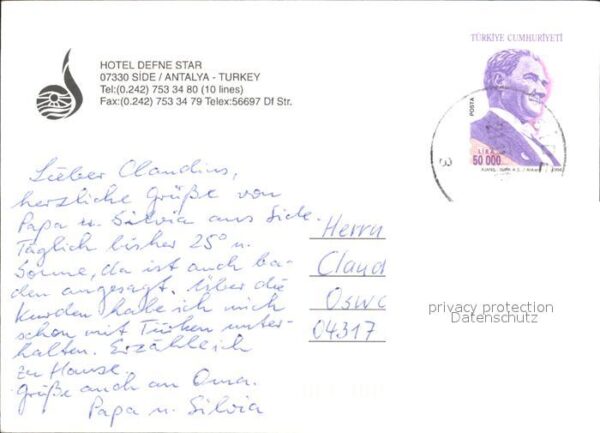 HOTEL DEFNE STAR
07330 SİDE / ANTALYA - TURKEY
Tel:(0.242) 753 34 80 (10 lines)
Fax:(0.242) 753 34 79 Telex:56697 Df Str.
TÜRKİYE CUMHURİYETİ
POSTA
LİRA
50 000
Lieber Claudius,
herzliche Grüße von
Papa u. Silvia aus Side.
Täglich bisher 25° u.
Sonne, da ist auch ba-
den angesagt. Über die
Kurden habe ich mich
schon mit Türken unter-
halten. Erzähle ich
zu Hause.
Grüße auch an Oma.
Papa u. Silvia
Herrn
Claud
Oswa
04317
privacy protection
Datenschutz